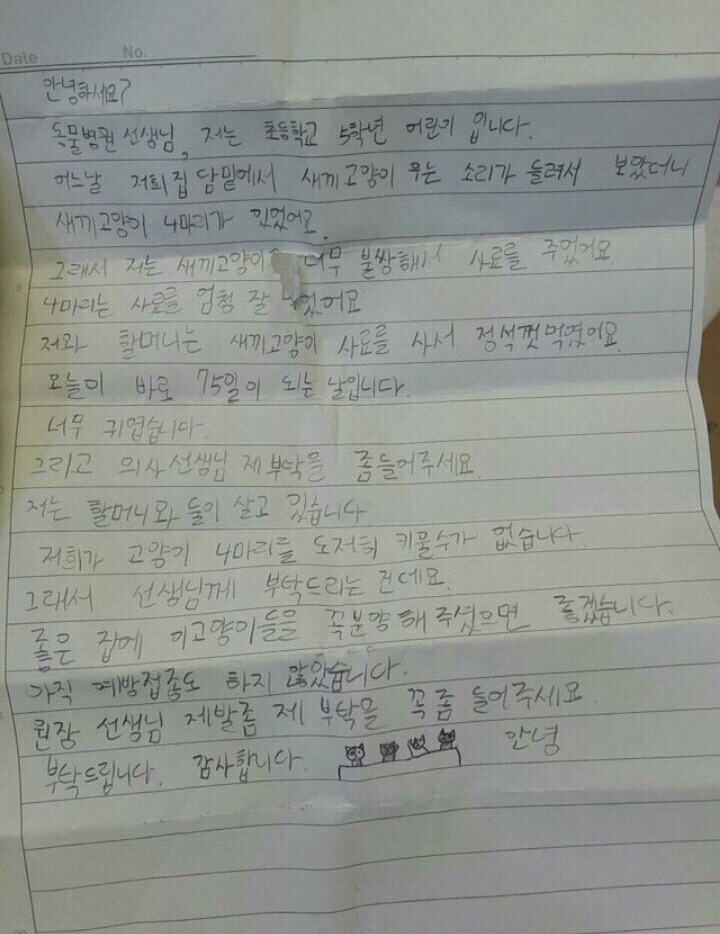 Date No.
안녕하세요?
동물병원 선생님, 저는 초등학교 5학년 어린이 입니다.
어느날 저희집 담밑에서 새끼고양이 우는 소리가 들려서 보았더니
새끼고양이 4마리가 있었어요.
그래서 저는 새끼고양이 너무 불쌍해서 사료를 주었어요.
4마리는 사료를 엄청 잘 었어요
저와 할머니는 새끼고양이 사료를 사서 정석껏먹였어요.
오늘이 바로 75일이 되는 날입니다.
너무 귀엽습니다.
그리고 의사선생님 제부탁을 좀들어주세요.
저는 할머니와 둘이 살고 있습니다
저희가 고양이 4마리를 도저희 키울수가 없습니다.
그래서 선생님께 부탁드리는 건데요.
좋은 집에 이고양이들을 꼭분양해주셨으면 좋겠습니다.
아직 예방접종도 하지 않았습니다.
원장 선생님 제발좀 제 부탁을 꼭좀 들어주세요.
부탁드립니다. 감사합니다. 안녕